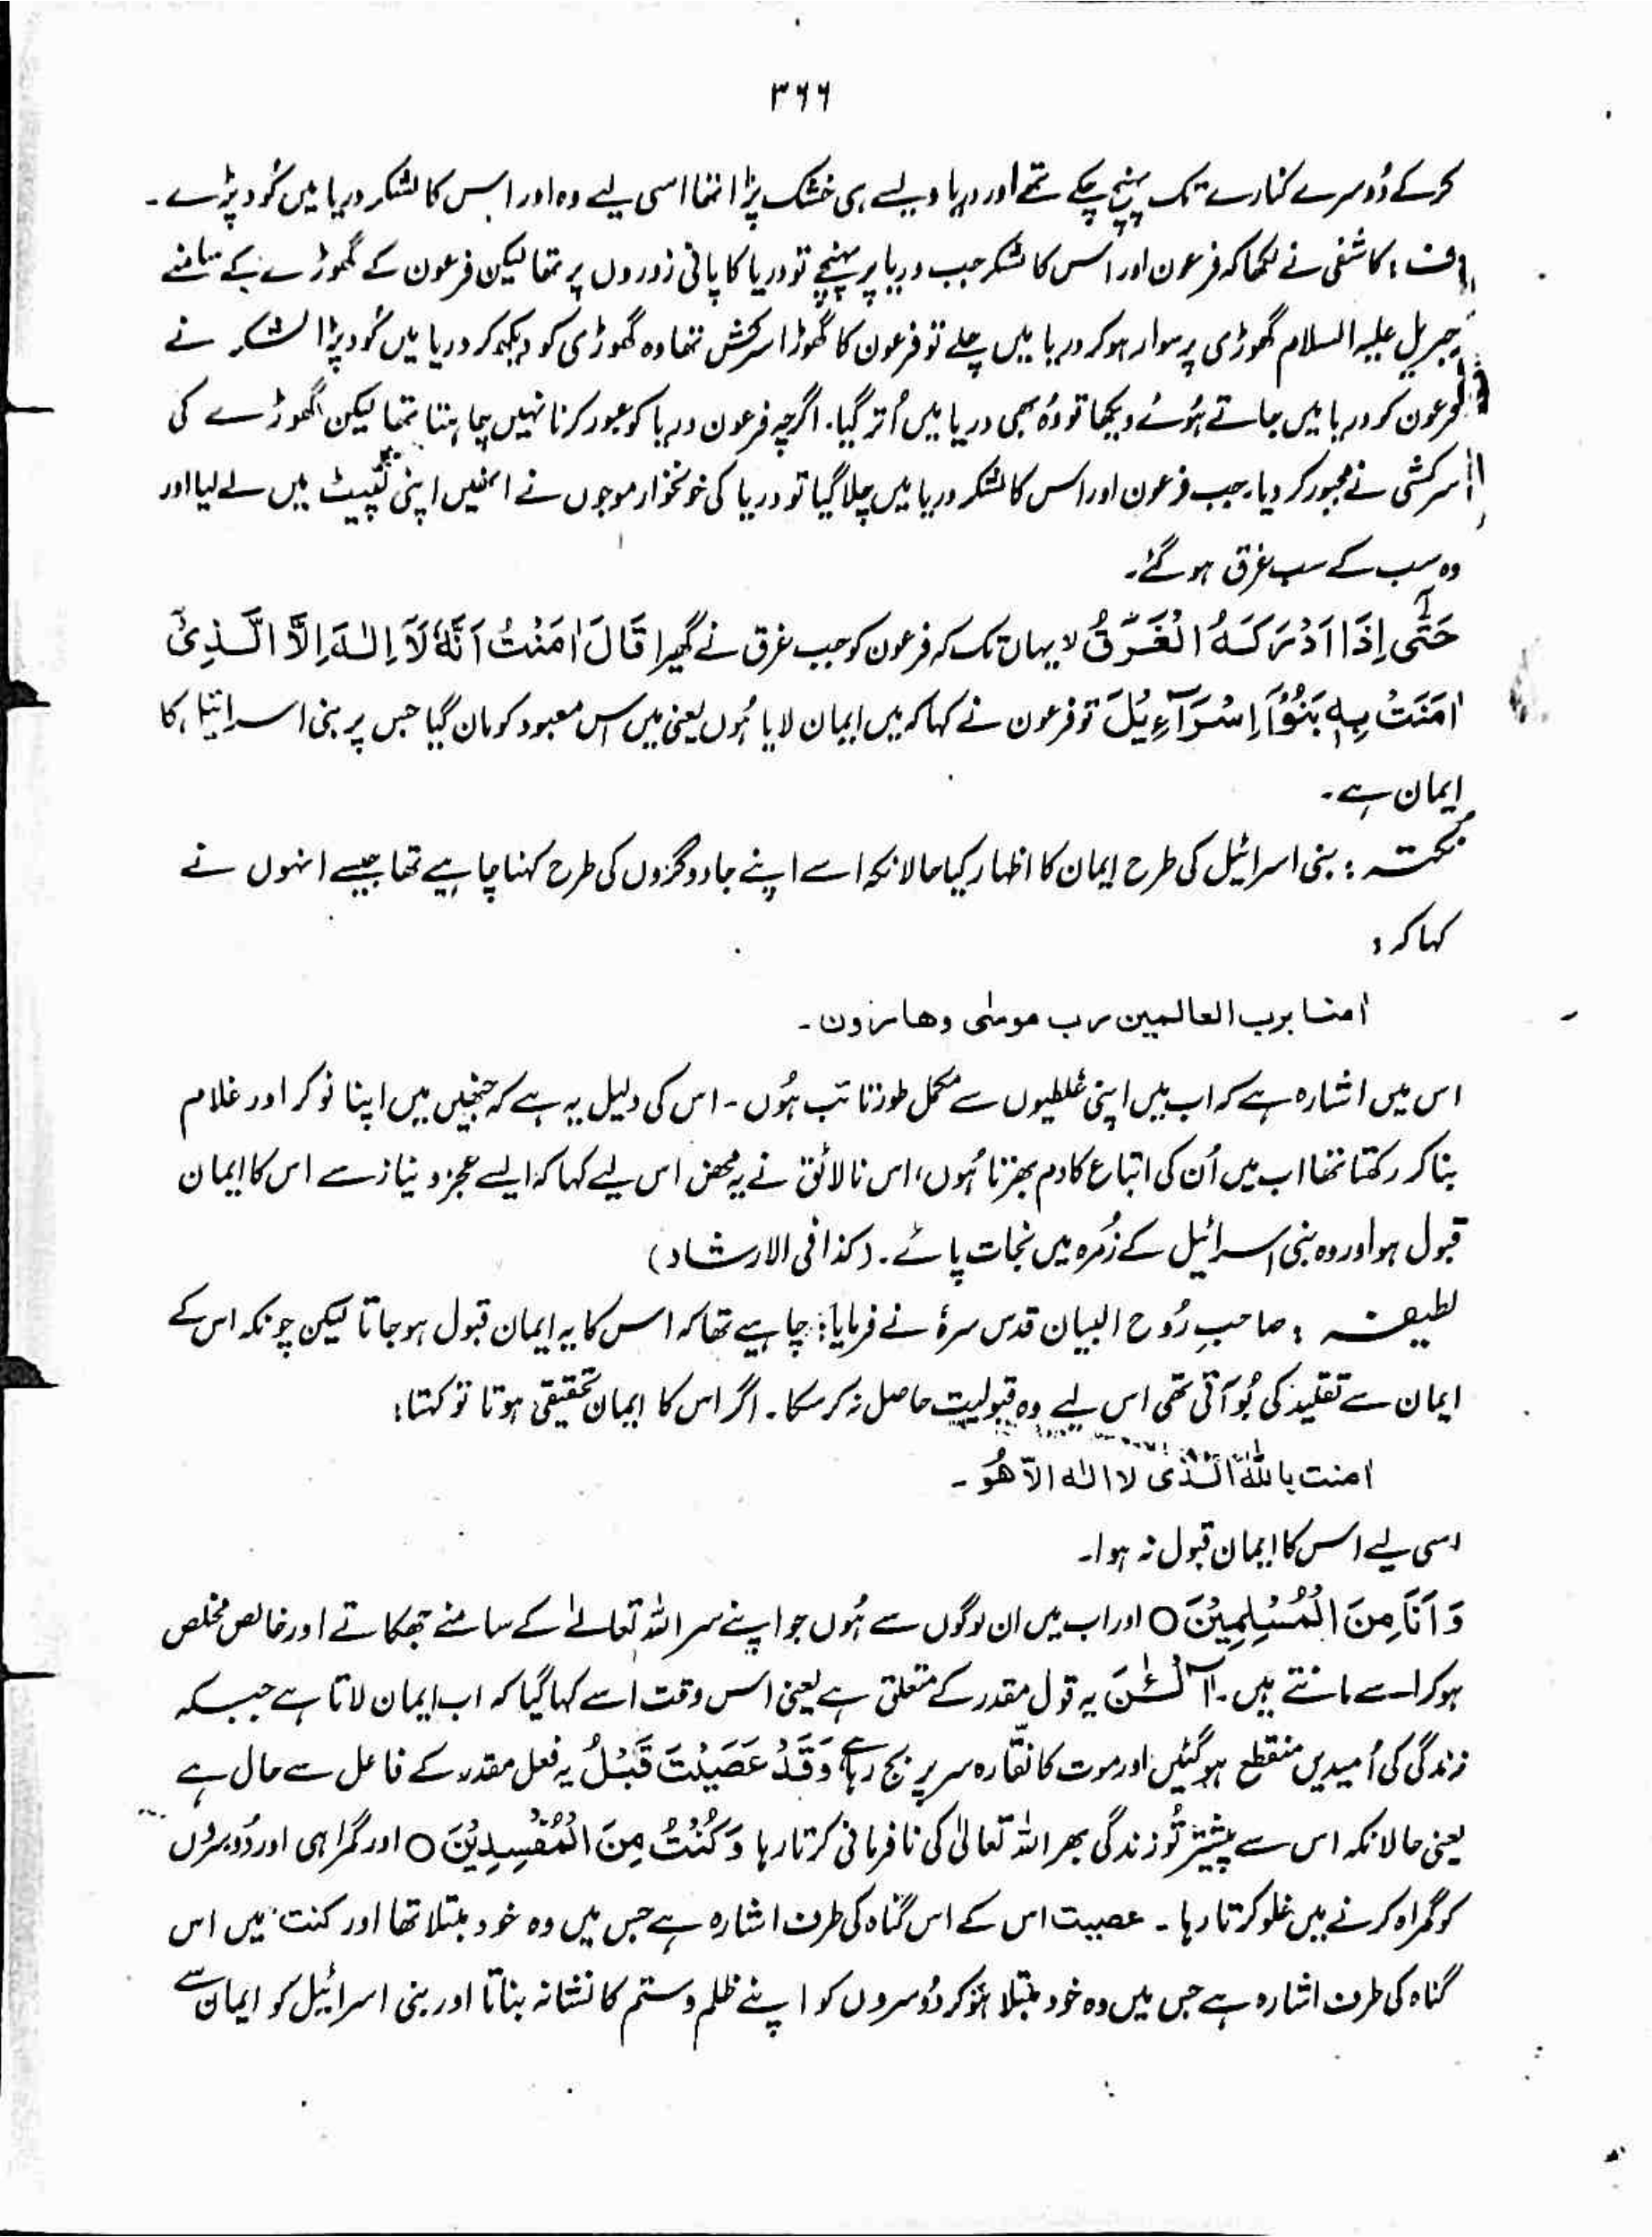 ۳۶۶
کرکے دُوسرے کنارے تک پہنچ چکے تھے اور دریا ویسے ہی خشک پڑا تھا اسی لیے وہ اور اس کا لشکر دریا میں کُود پڑے ۔
ف : کاشفی نے لکھا کہ فرعون اور اس کا لشکر جب دریا پر پہنچے تو دریا کا پانی زوروں پر تھا لیکن فرعون کے گھوڑے کے سامنے
جبریل علیہ السلام گھوڑی پر سوار ہو کر دریا میں چلے تو فرعون کا گھوڑا سرکش تھا وہ گھوڑی کو دیکھ کر دریا میں کُود پڑا لشکر نے
فرعون کو دریا میں جاتے ہُوئے دیکھا تو وُہ بھی دریا میں اُتر گیا ۔ اگرچہ فرعون دریا کو عبور کرنا نہیں چاہتا تھا لیکن گھوڑے کی
سرکشی نے مجبور کر دیا ۔ جب فرعون اور اس کا لشکر دریا میں چلا گیا تو دریا کی خونخوار موجوں نے انھیں اپنی لپیٹ میں لے لیا اور
وہ سب کے سب غرق ہو گئے ۔
حَتّٰٓی اِذَآ اَدْرَکَہُ الْغَرَقُ لا یہاں تک کہ فرعون کو جب غرق نے گھیرا قَالَ اٰمَنْتُ اَنَّہٗ لَآ اِلٰہَ اِلَّا الَّذِیْٓ
اٰمَنَتْ بِہٖ بَنُوْٓا اِسْرَآءِیْلَ تو فرعون نے کہا کہ میں ایمان لایا ہُوں یعنی میں اس معبود کو مان گیا جس پر بنی اسرائیل کا
ایمان ہے ۔
نکتہ : بنی اسرائیل کی طرح ایمان کا اظہار کیا حالانکہ اسے اپنے جادوگروں کی طرح کہنا چاہیے تھا جیسے انہوں نے
کہا کہ :
اٰمنا برب العالمین رب موسٰی وھارون ۔
اس میں اشارہ ہے کہ اب میں اپنی غلطیوں سے مکمل طور تائب ہُوں ۔ اس کی دلیل یہ ہے کہ جنھیں میں اپنا نوکر اور غلام
بنا کر رکھتا تھا اب میں اُن کی اتباع کا دم بھرتا ہُوں ، اس نالائق نے یہ محض اس لیے کہا کہ ایسے عجز و نیاز سے اس کا ایمان
قبول ہو اور وہ بنی اسرائیل کے زُمرہ میں نجات پائے ۔ (کذا فی الارشاد)
لطیفہ : صاحبِ رُوح البیان قدس سرہٗ نے فرمایا : چاہیے تھا کہ اس کا یہ ایمان قبول ہو جاتا لیکن چونکہ اس کے
ایمان سے تقلید کی بُو آتی تھی اس لیے وہ قبولیت حاصل نہ کر سکا ۔ اگر اس کا ایمان تحقیقی ہوتا تو کہتا :
اٰمنت باللہ الذی لا الٰہ الّا ھُوَ ۔
اسی لیے اس کا ایمان قبول نہ ہوا ۔
وَ اَنَا مِنَ الْمُسْلِمِیْنَ ○ اور اب میں ان لوگوں سے ہُوں جو اپنے سر اللہ تعالےٰ کے سامنے جھکاتے اور خالص مخلص
ہو کر اسے مانتے ہیں ۔ آٰلْـٰٔنَ یہ قول مقدر کے متعلق ہے یعنی اس وقت اسے کہا گیا کہ اب ایمان لاتا ہے جبکہ
زندگی کی اُمیدیں منقطع ہو گئیں اور موت کا نقّارہ سر پر بج رہا ہے وَقَدْ عَصَیْتَ قَبْلُ یہ فعل مقدر کے فاعل سے حال ہے
یعنی حالانکہ اس سے پیشتر تُو زندگی بھر اللہ تعالیٰ کی نافرمانی کرتا رہا وَ کُنْتَ مِنَ الْمُفْسِدِیْنَ ○ اور گمراہی اور دُوسروں
کو گمراہ کرنے میں غلو کرتا رہا ۔ عصیت اس کے اس گناہ کی طرف اشارہ ہے جس میں وہ خود مبتلا تھا اور کنت میں اس
گناہ کی طرف اشارہ ہے جس میں وہ خود مبتلا ہو کر دُوسروں کو اپنے ظلم و ستم کا نشانہ بناتا اور بنی اسرائیل کو ایمان سے